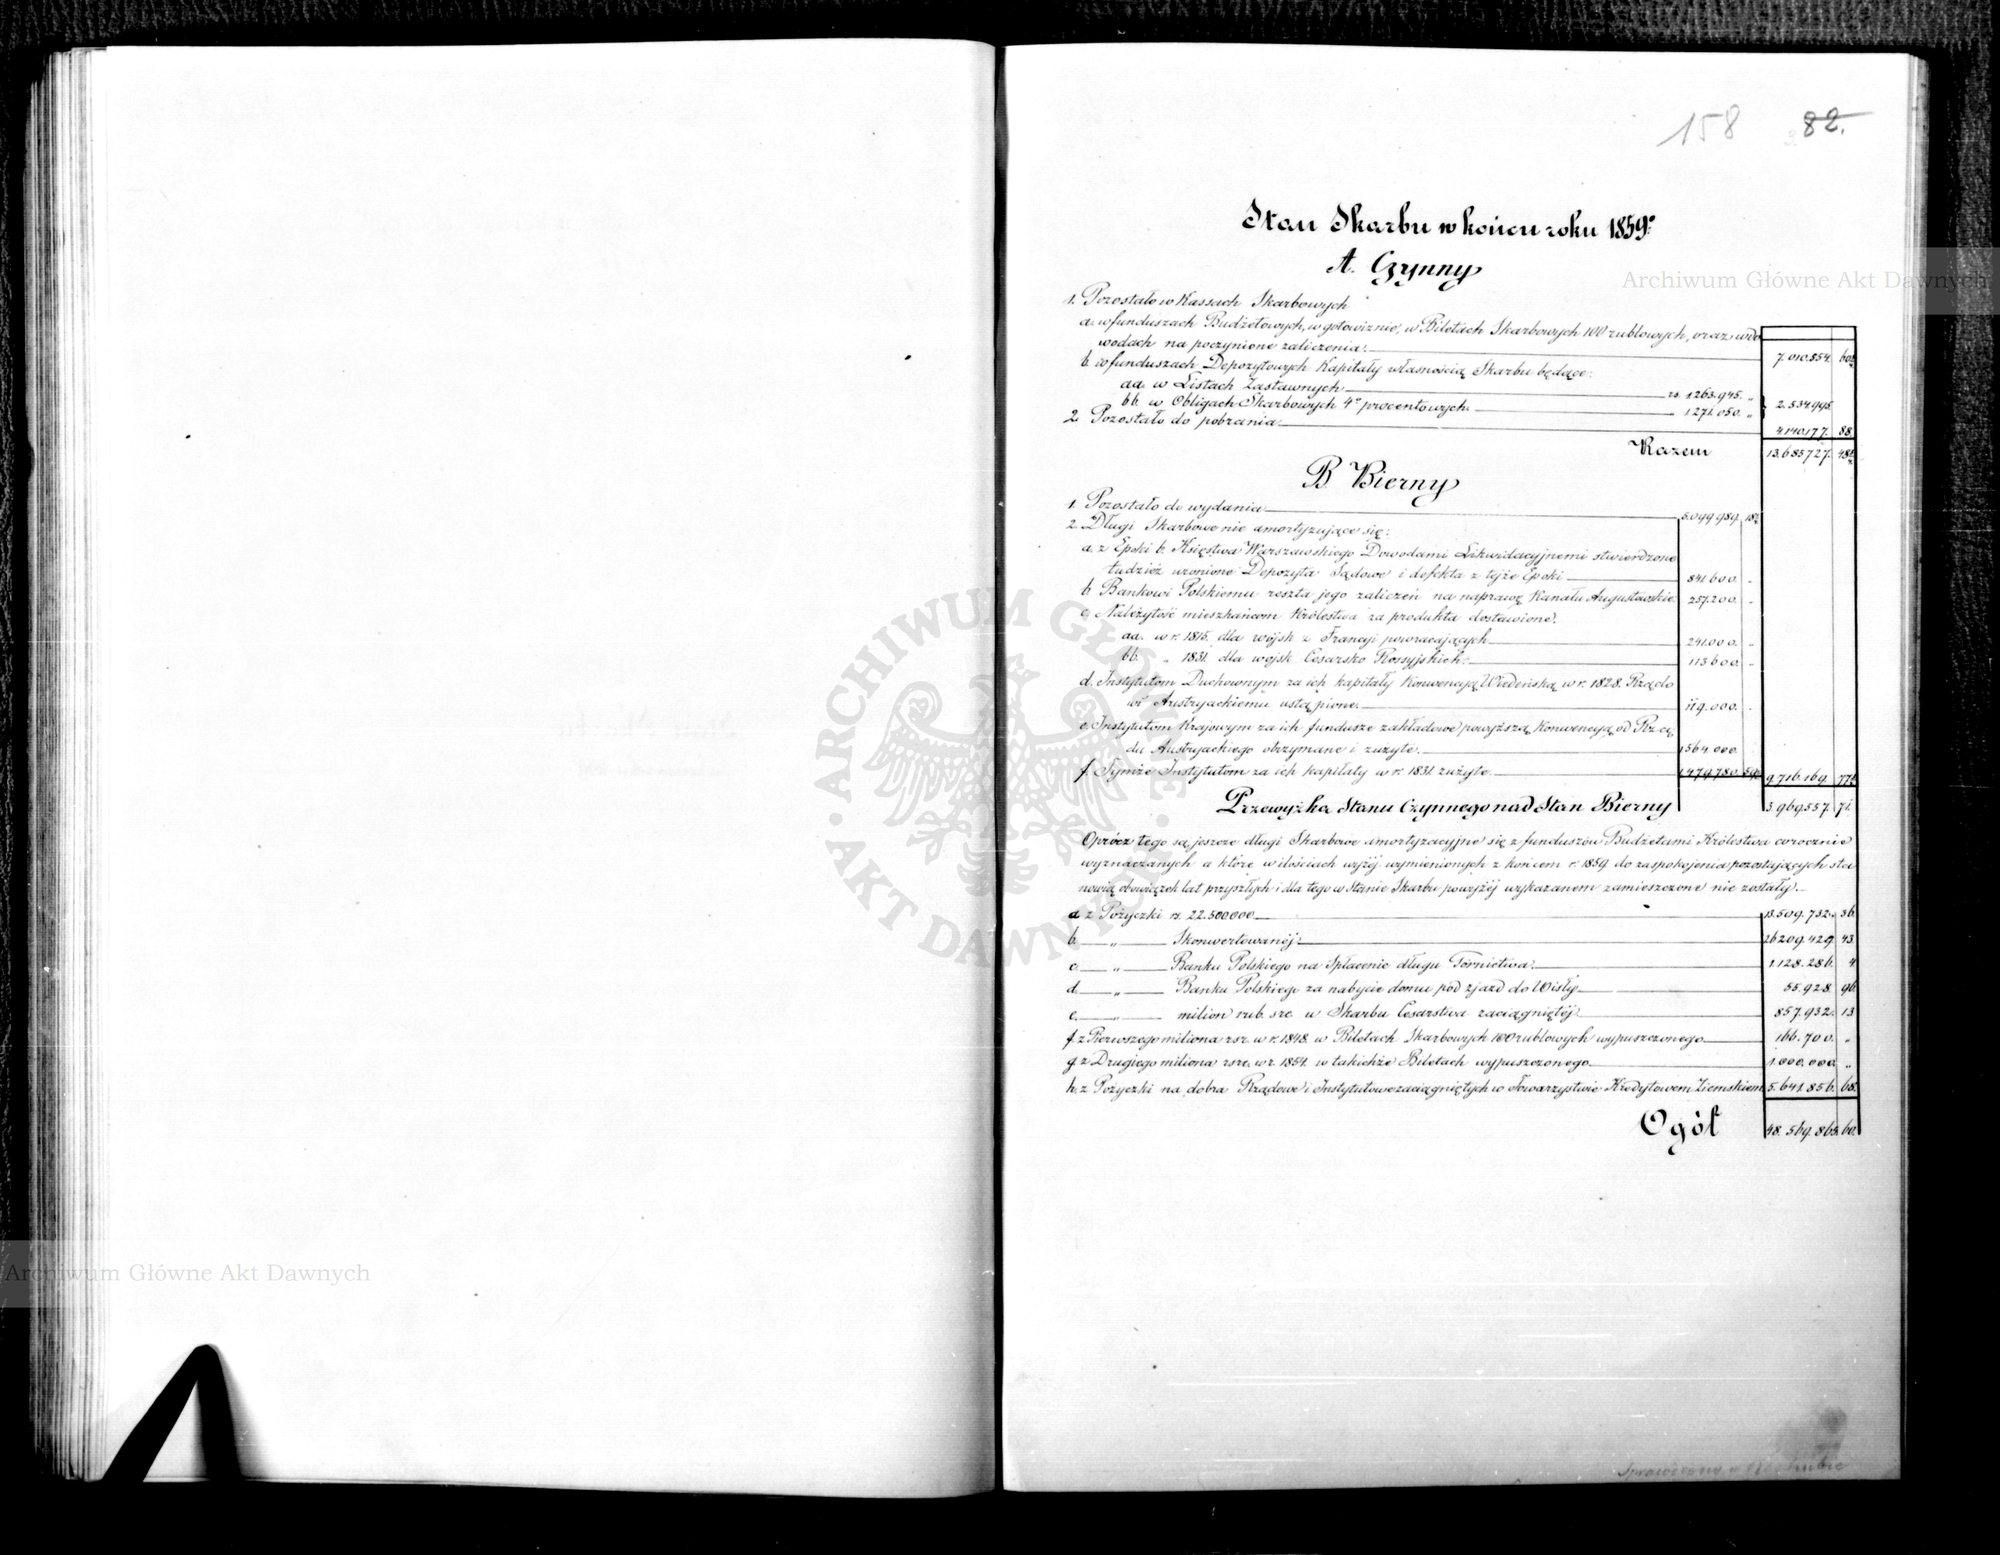 158 82.
Stan Skarbu w końcu roku 1859º
A. Czynny
1. Pozostało w Kassach Skarbowych
a. w funduszach Budżetowych, w gotowiznie, w Biletach Skarbowych 100 rublowych, oraz w do
wodach na poczynione zaliczenia. 7.010.854. 60½
b. w funduszach Depozytowych Kapitały własnością Skarbu będące:
aa. w Listach Zastawnych rs. 1.263.945. „
bb. w Obligach Skarbowych 4º procentowych 1.271.050. „ 2.534.995.
2. Pozostało do pobrania 4.140.177. 88.
Razem 13.685.727. 48½
B. Bierny
1. Pozostało do wydania 5.099.989. 18½
2. Długi Skarbowe nie amortyzujące się:
a. z Epoki b. Księstwa Warszawskiego Dowodami Likwidacyjnemi stwierdzone
tudzież uronione Depozyta Sądowe i defekta z tejże Epoki 841.600. „
b. Bankowi Polskiemu reszta jego zaliczeń na naprawę Kanału Augustowskie. 257.200. „
c. Należytość mieszkańcom Królestwa za produkta dostawione.
aa. w r. 1815. dla wojsk z Francyi powracających 241.000. „
bb. „ 1831. dla wojsk Cesarsko Rossyjskich. 113.600. „
d. Instytutom Duchownym za ich kapitały Konwencyą Wiedeńską w r. 1828. Rządo
wi Austryackiemu ustąpione. 119.000. „
e. Instytutom Krajowym za ich fundusze zakładowe powyższą Konwencyą od Rzą
du Austryackiego otrzymane i zużyte. 1.564.000.
f. Tymże Instytutom za ich kapitały w r. 1831 zużyte. 1.479.780. 59. 9.716.169. 77½
Przewyżka Stanu Czynnego nad Stan Bierny 3.969.557. 71.
Oprócz tego są jeszcze długi Skarbowe amortyzacyjne się z funduszów Budżetami Królestwa corocznie
wyznaczanych a które w ilościach wyżej wymienionych z końcem r. 1859 do zaspokojenia pozostających sta
nowią obowiązek lat przyszłych i dla tego w Stanie Skarbu powyżej wykazanem zamieszczone nie zostały.
a. z Pożyczki rs. 22.500.000 13.509.732. 36.
b. „ Skonwertowanéj 26.209.429. 43.
c. „ Banku Polskiego na Spłacenie długu Górnictwa 1.128.286. 4
d. „ Banku Polskiego za nabycie domu pod zjazd do Wisły 55.928. 96.
e. „ milion rub. sre. u Skarbu Cesarstwa zaciągniętéj 857.932. 13
f. z Pierwszego miliona rsr. w r. 1848. w Biletach Skarbowych 100 rublowych wypuszczonego 166.700. „
g. z Drugiego miliona rsre. w r. 1854. w takichże Biletach wypuszczonego 1.000.000. „
h. z Pożyczki na dobra Rządowe i Instytutowe zaciągniętych w Towarzystwie Kredytowem Ziemskiem 5.641.856. 68.
Ogół 48.569.865. 60.
Archiwum Główne Akt Dawnych
Archiwum Główne Akt Dawnych
ARCHIWUM GŁÓWNE AKT DAWNYCH